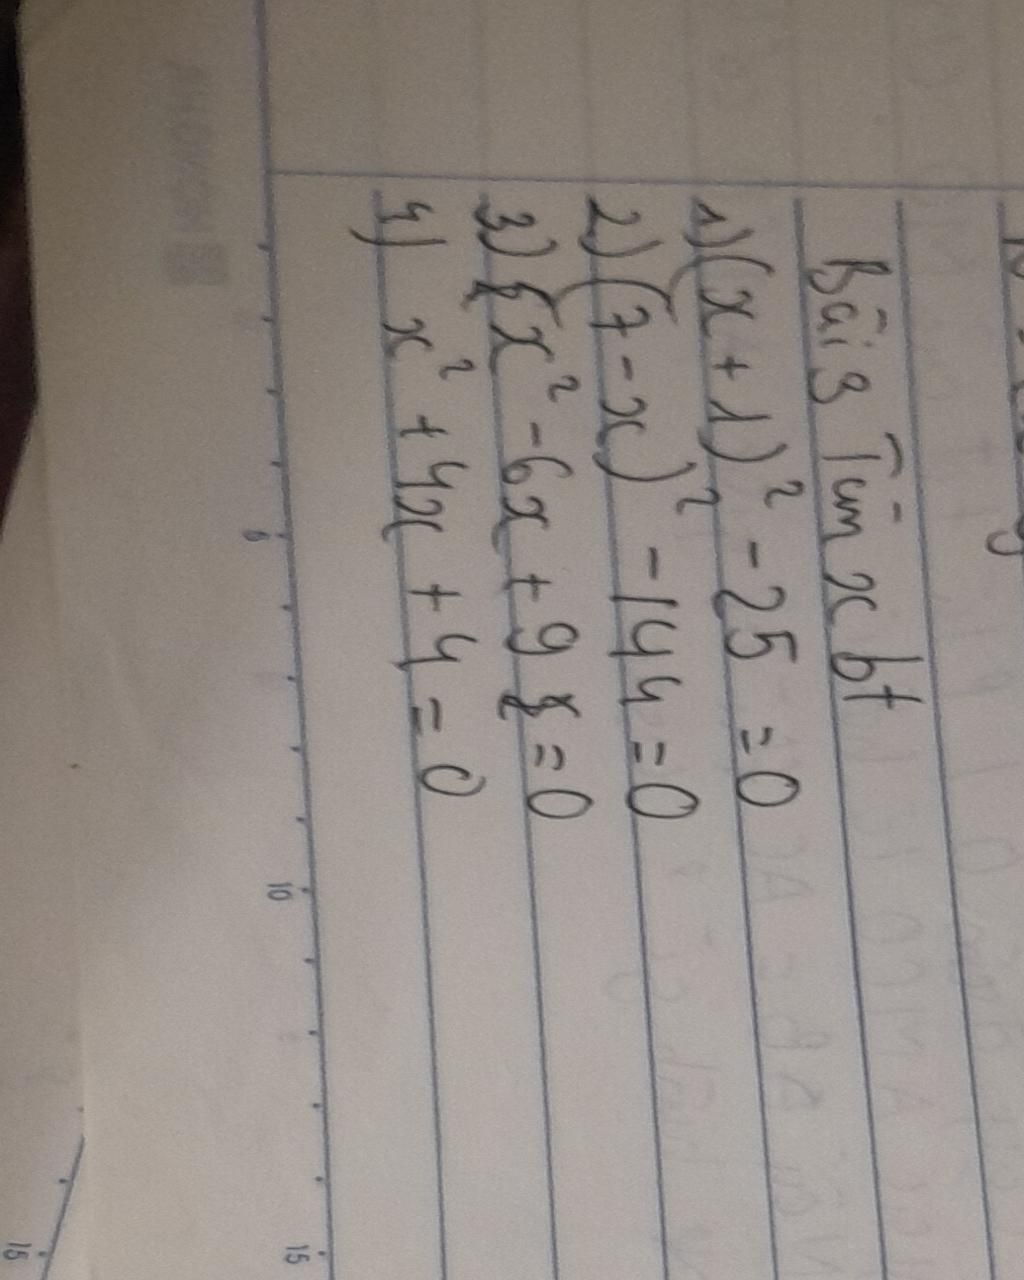 Bài 9 Tìm x bt
1) (x + 1)² - 25 = 0
2) (7 - x)² - 144 = 0
3) x² - 6x + 9 = 0
4) x² + 4x + 4 = 0
5
10
15
15